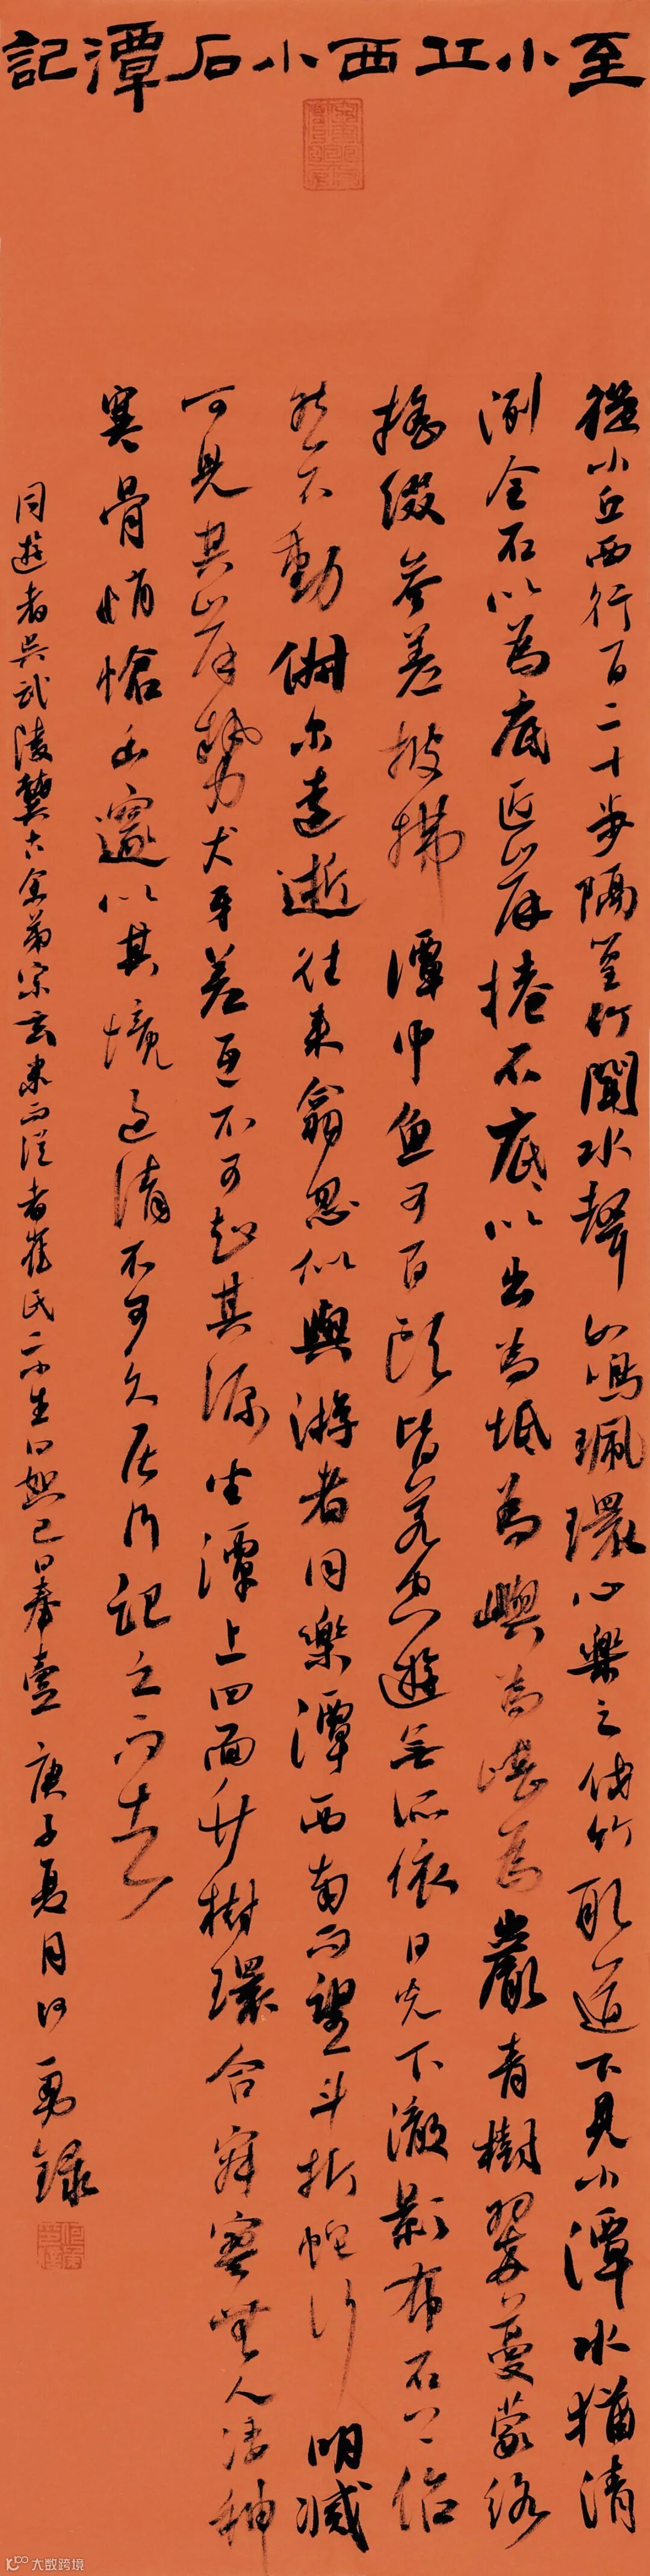 至小丘西小石潭記
從小丘西行百二十步隔篁竹聞水聲如鳴珮環心樂之伐竹取道下見小潭水猶清
冽全石以為底近岸捲石底以出為坻為嶼為嵁為巖青樹翠蔓蒙絡
搖綴參差披拂潭中魚可百頭皆若空遊無所依日光下澈影布石上佁
然不動俶尔遠逝往來翕忽似與游者同樂潭西南而望斗折蛇行明滅
可見其岸勢犬牙差互不可知其源坐潭上四面竹樹環合寂寥無人淒神
寒骨悄愴幽邃以其境過清不可久居乃記之而去
同遊者吳武陵龔古余弟宗玄隸而從者崔氏二小生曰恕己曰奉壹 庚子夏月何勇錄
大数跨境